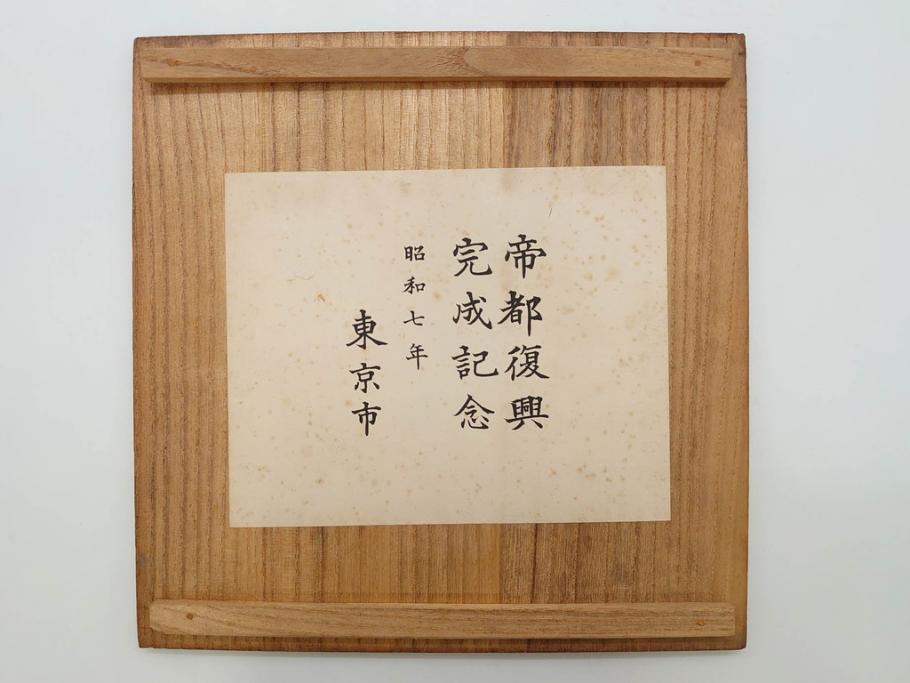 帝都復興
完成記念
昭和七年
東京市